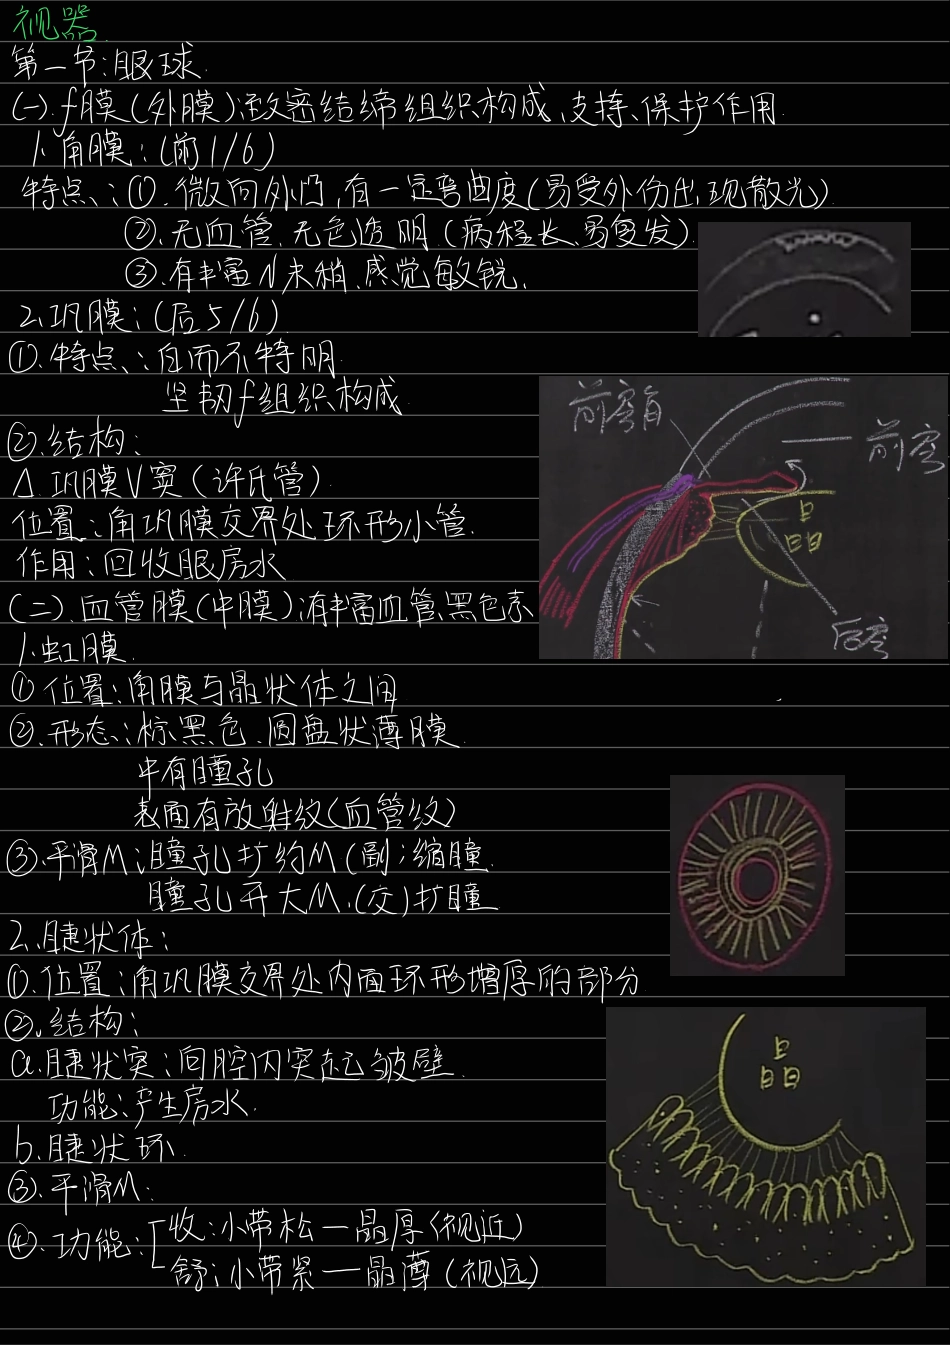 视器
第一节:眼球
(一).f膜(外膜):致密结缔组织构成、支持、保护作用
1.角膜:(前1/6)
特点:①.微向外凸,有一定弯曲度(易受外伤出现散光)
②.无血管、无色透明.(病程长、易复发)
③.有丰富N末梢、感觉敏锐.
2.巩膜:(后5/6)
①.特点:白而不特明
坚韧f组织构成
②.结构:
Δ.巩膜V窦(许氏管)
位置:角巩膜交界处环形小管.
作用:回收眼房水
(二).血管膜(中膜):有丰富血管、黑色素
1.虹膜.
①位置:角膜与晶状体之间
②.形态:棕黑色、圆盘状薄膜.
中有瞳孔
表面有放射纹(血管纹)
③.平滑M:瞳孔扩约M(副):缩瞳.
瞳孔开大M.(交)扩瞳
2.睫状体:
①.位置:角巩膜交界处内面环形增厚的部分
②.结构:
a.睫状突:向腔内突起皱壁.
功能:产生房水.
b.睫状环.
③.平滑M:
④.功能:
收:小带松—晶厚(视近)
舒:小带紧—晶薄(视远)
前房角
前房
晶
后房
晶